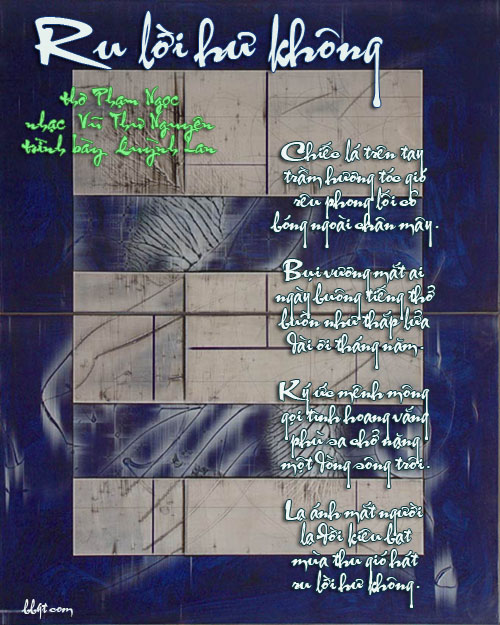 Ru lời hư không
thơ Phạm Ngọc
nhạc Vũ Thư Nguyên
trình bày Quỳnh Lan
Chiếc lá trên tay
trầm hương tóc gió
rêu phong lối cỏ
bóng ngoài chân mây.
Bụi vương mắt ai
ngày buông tiếng thở
buồn như thắp lửa
dài ôi tháng năm.
Ký ức mênh mông
gọi tình hoang vắng
phù sa chở nặng
một dòng sông trôi.
Lạ ánh mắt người
lạ đời kiêu bạt
mùa thu gió hát
ru lời hư không.
bbqt.com